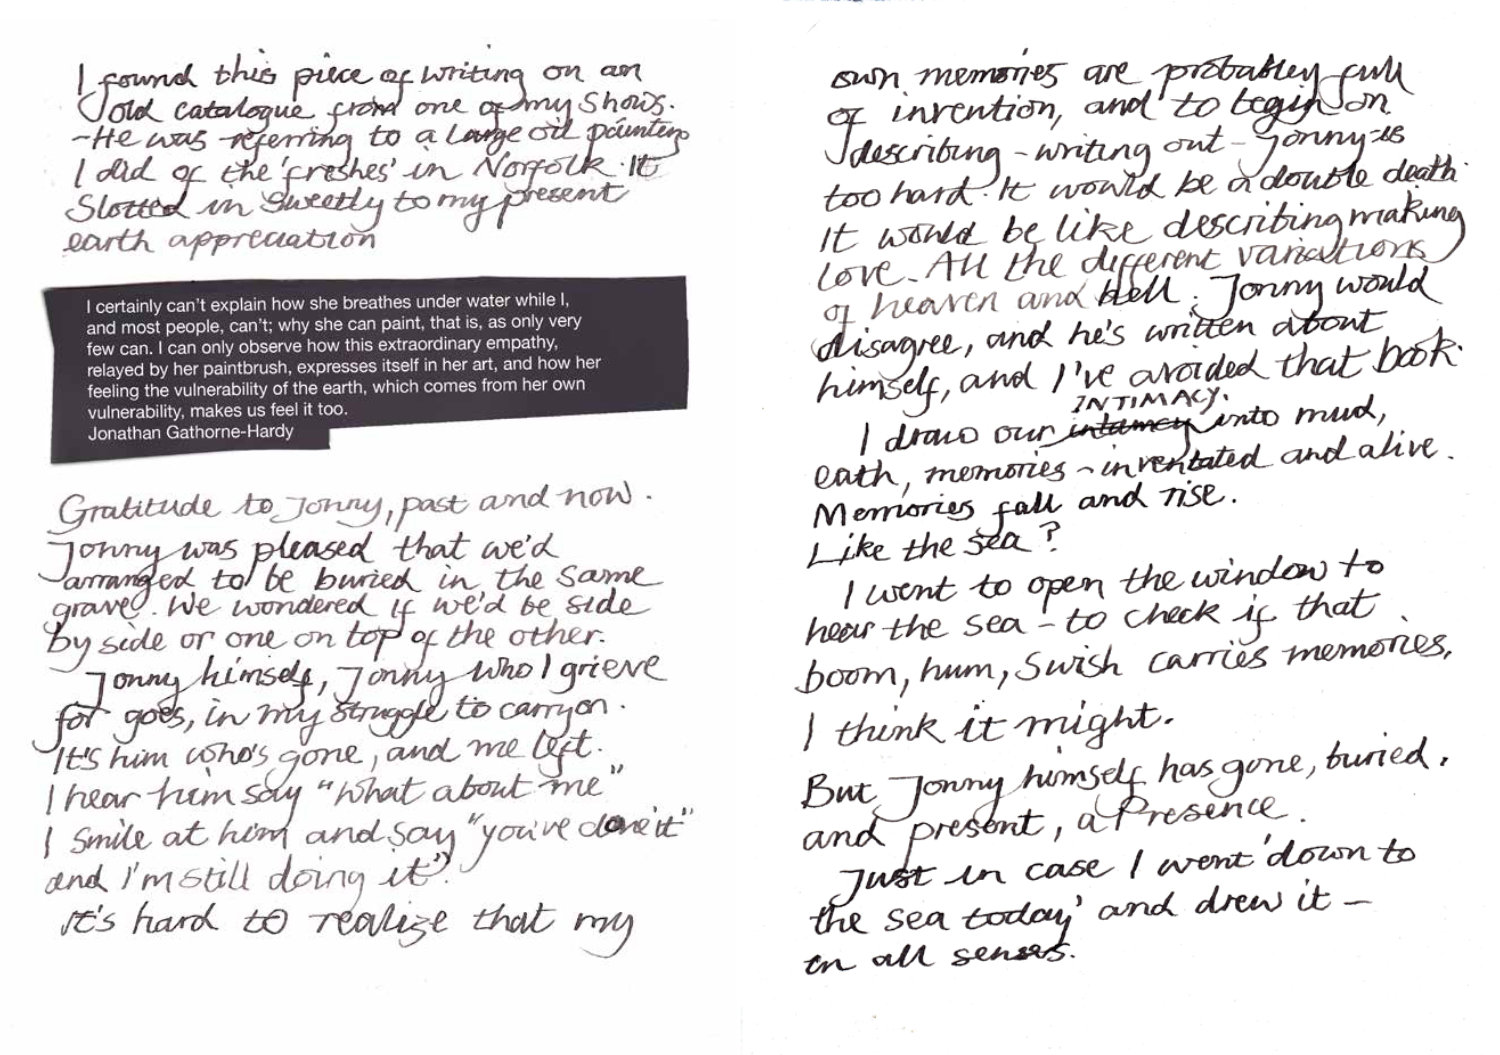 I found this piece of writing on an
old catalogue from one of my shows.
- He was referring to a large oil painting
I did of the 'freshes' in Norfolk. It
Slotted in sweetly to my present
earth appreciation
I certainly can't explain how she breathes under water while I,
and most people, can't; why she can paint, that is, as only very
few can. I can only observe how this extraordinary empathy,
relayed by her paintbrush, expresses itself in her art, and how her
feeling the vulnerability of the earth, which comes from her own
vulnerability, makes us feel it too.
Jonathan Gathorne-Hardy
Gratitude to Jonny, past and now.
Jonny was pleased that we'd
arranged to be buried in the same
grave. We wondered if we'd be side
by side or one on top of the other.
Jonny himself, Jonny who I grieve
for goes, in my struggle to carry on.
It's him who's gone, and me left.
I hear him say "What about me"
I smile at him and say "you've done it"
and I'm still doing it".
It's hard to realize that my
own memories are probabley full
of invention, and to begin on
describing - writing out - Jonny - is
too hard. It would be a double death.
It would be like describing making
love. All the different variations
of heaven and hell. Jonny would
disagree, and he's written about
himself, and I've avoided that book.
INTIMACY.
I draw our intamcy into mud,
eath, memories - inventated and alive.
Memories fall and rise.
Like the sea?
I went to open the window to
hear the sea - to check if that
boom, hum, swish carries memories,
I think it might.
But Jonny himself has gone, buried,
and present, a Presence.
Just in case I went 'down to
the sea today' and drew it -
in all senses.